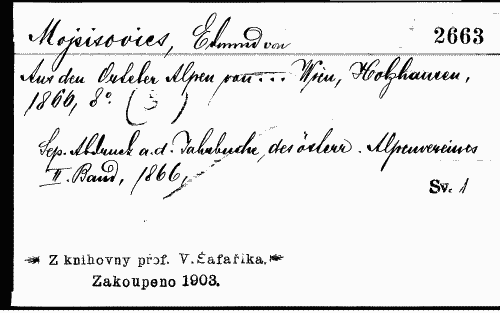 Mojsisovics, Edmund von 2663
Aus den Orteler Alpen von ... Wien, Holzhausen,
1866, 8°. (5)
Sep. Abdruck a. d. Jahrbuche des österr. Alpenvereines
II. Band, 1866,
Sv. 1
Z knihovny prof. V. Šafaříka.
Zakoupeno 1903.